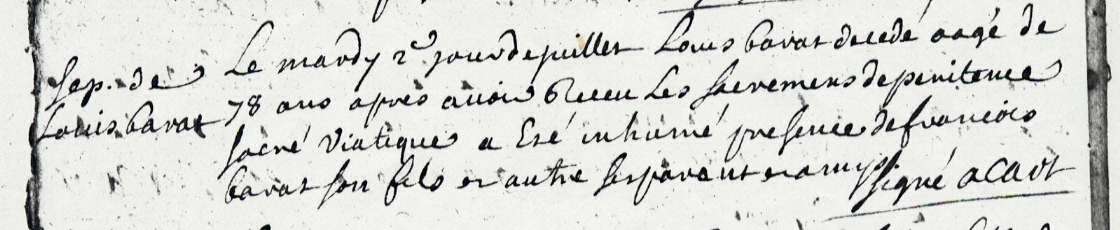 Sep. de
Louis barat
Le mardy 2e jour de juillet Louis barat decedé aagé de
78 ans apres avoir Receu Les sacremens de penitence
sacré viatique a Esté inhumé presence de francois
barat son fils et autre ses parent et amys signé acart